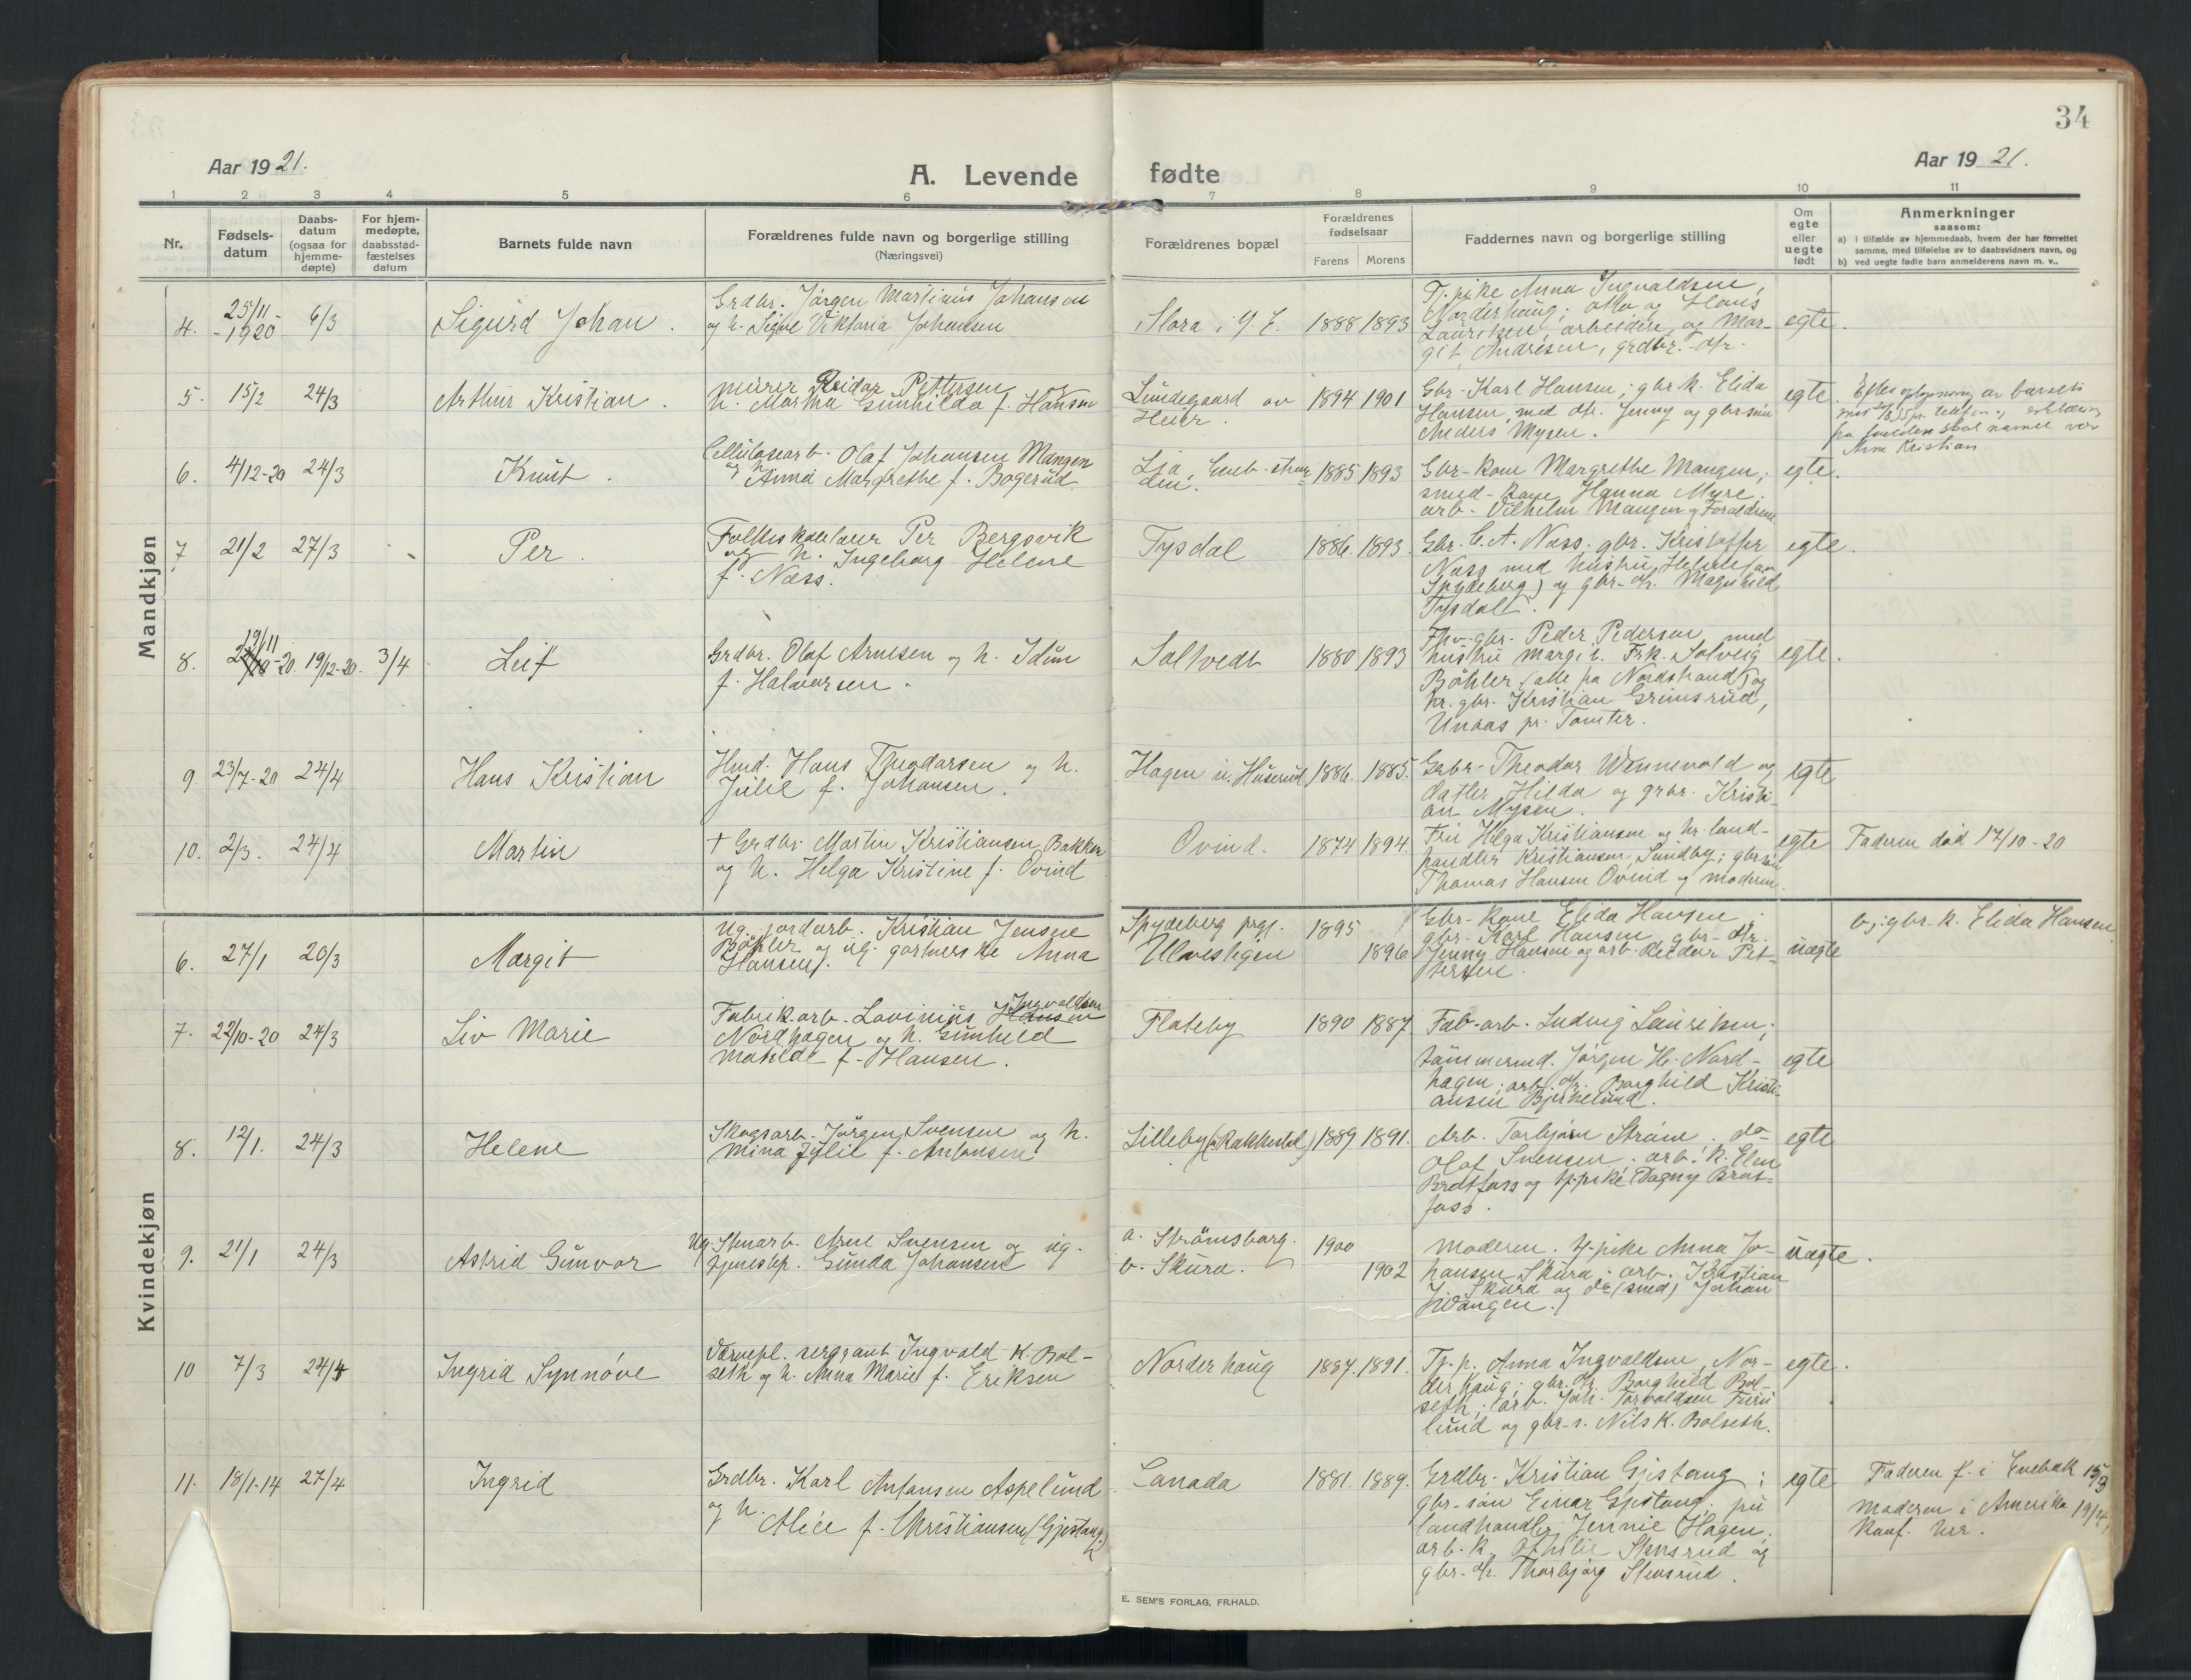 34
Aar 1921.
A. Levende fødte
Aar 1921.
1 2 3 4 5 6 7 8 9 10 11
Nr.
Fødsels-
datum
Daabs-
datum
(ogsaa for
hjemme-
døpte)
For hjem-
medøpte,
daabsstad-
fæstelses
datum
Barnets fulde navn
Forældrenes fulde navn og borgerlige stilling
(Næringsvei)
Forældrenes bopæl
Forældrenes
fødselsaar
Farens Morens
Faddernes navn og borgerlige stilling
Om
egte
eller
uegte
født
Anmerkninger
saasom:
a) i tilfælde av hjemmedaab, hvem der har forrettet
samme, med tilføielse av to daabsvidners navn, og
b) ved uegte fødte barn anmelderens navn m. v..
Mandkjøn
4. 25/11-
-1920 6/3 Sigurd Johan.
Grdbr. Jørgen Martinius Johansen
og h. Signe Viktoria Johansen
1888 1893
Tj.pike Anna Ingvaldsen,
Norderhaug; Otto og Hans
Lauritsen, arbeidere, og Mar-
git Andresen, grdbr. dtr.
egte.
5. 15/2 24/3 Arthur Kristian.
murer Reidar Pettersen og
h. Martha Gunhilda f. Hansen
Lundsgaard av
Heier.
1894 1901
Gbr. Karl Hansen; gbr.k. Elida
Hansen, med dtr. Jenny og gbr.søn
Anders Mysen.
egte.
Kristian
6. 4/12-20 24/3 Knut.
Cellulosearb. Olaf Johansen Mangen
og h. Anna Margrethe f. Bogerud.
1885 1893
Gbr-kone Margrethe Mangen;
smed-kone Hanna Myre;
arb. Vilhelm Mangen og Forældrene
egte.
7 21/2 27/3 Per.
Folkeskolelærer Per Bergsvik
og h. Ingeborg Helene
f. Næss.
Tysdal
1886. 1893.
Gbr. C. A. Næss. gbr. Kristoffer
Næss med hustru Helene (av
Spydeberg) og gbr-dtr. Magnhild
Tysdal.
egte.
8. 19/11-20. 19/12-20. 3/4 Leif
Grdbr. Olaf Arnesen og h. Idun
f. Halvorsen.
Saltvedt
1880 1893
Fhv. gbr. Peder Pedersen med
hustru Margit. Frk. Solveig
Bøhler (alle fra Nordstrand) og
hr. gbr. Kristian Grimsrud,
Unaas pr. Tomter.
egte.
9. 23/7-20 24/4 Hans Kristian
Hmd. Hans Theodorsen og h.
Julie f. Johansen.
Hagen u. Huserud
1886. 1885.
Grbr. Theodor Winnevold og
datter Hilda og grbr. Kristi-
an Mysen.
egte
10. 2/3. 24/4 Martin
+ Grdbr. Martin Kristiansen Bakken
og h. Helga Kristine f. Ovind
Ovind.
1874 1894.
Fru Helga Kristiansen og hr. land-
handler Kristiansen, Sundby; gbr.søn
Thomas Hansen Ovind og moderen.
egte
Faderen død 17/10-20
Kvindekjøn
6. 27/1 20/3 Margit
Ug. jordarb. Kristian Jensen
Bøhler og ug. gartnerske Anna
Hansen.
Spydeberg prgj.
Ulvestigen
1895
1896
Gbr-kone Elida Hansen;
gbr. Karl Hansen, gbr-dtr.
Jenny Hansen og arb. Reidar Pet-
tersen.
uegte
b; gbr. k. Elida Hansen.
7. 22/10-20 24/3 Liv Marie
Fabrik-arb. Lavinius Hansen Ingvaldsen
Nordhagen og h. Gunhild
Matilde f. Hansen.
Flateby
1890 1887
Fab-arb. Ludvig Lauritsen;
tømmermd. Jørgen H. Nord-
hagen; arb. dtr. Borghild Kristi-
ansen Bjerkelund.
egte
8. 12/1. 24/3 Helene
Skogsarb. Jørgen Svensen og h.
Mina Julie f. Antonsen
Lilleby (i Rakkestad)
1889 1891.
Arb. Torbjørn Strøm. do
Olaf Svensen. arb. k. Elen
Bratfoss og tj-pike Dagny Brat-
foss.
egte
9. 21/1 24/3 Astrid Gunvor
Ug. Stenarb. Arne Svensen og ug.
tjenestep. Gunda Johansen
a. Strømsborg.
b. Skura.
1900
1902
Moderen. tj-pike Anna Jo-
hansen Skura; arb. Kristian
Skura og do (smed) Johan
uegte.
10 7/3 24/4 Ingrid Synnøve
Værnepl. sergeant Ingvald K. Bol-
seth og h. Anna Marie f. Eriksen
Norderhaug
1887. 1891.
Tj.p. Anna Ingvaldsen, Nor-
derhaug; gbr. dtr. Borghild Bol-
seth; arb. Joh. Torvaldsen Furu
lund og gbr-s. Nils K. Bolseth.
egte.
11. 18/1-14 27/4 Ingrid
Grdbr. Karl Antonsen Aspelund
og h. Alice f. Christiansen (Gjestang)
Canada
1881. 1889.
Grdbr. Kristian Gjestang;
gbr-søn Einar Gjestang; fru
landhandler Jennie Hagen;
arb. k. Othilie Stensrud og
gbr-dtr. Thorbjørg Stensrud.
egte
Faderen f. i Enebak
moderen i Amerika
Konf. her.
E. SEM'S FORLAG, FR.HALD.